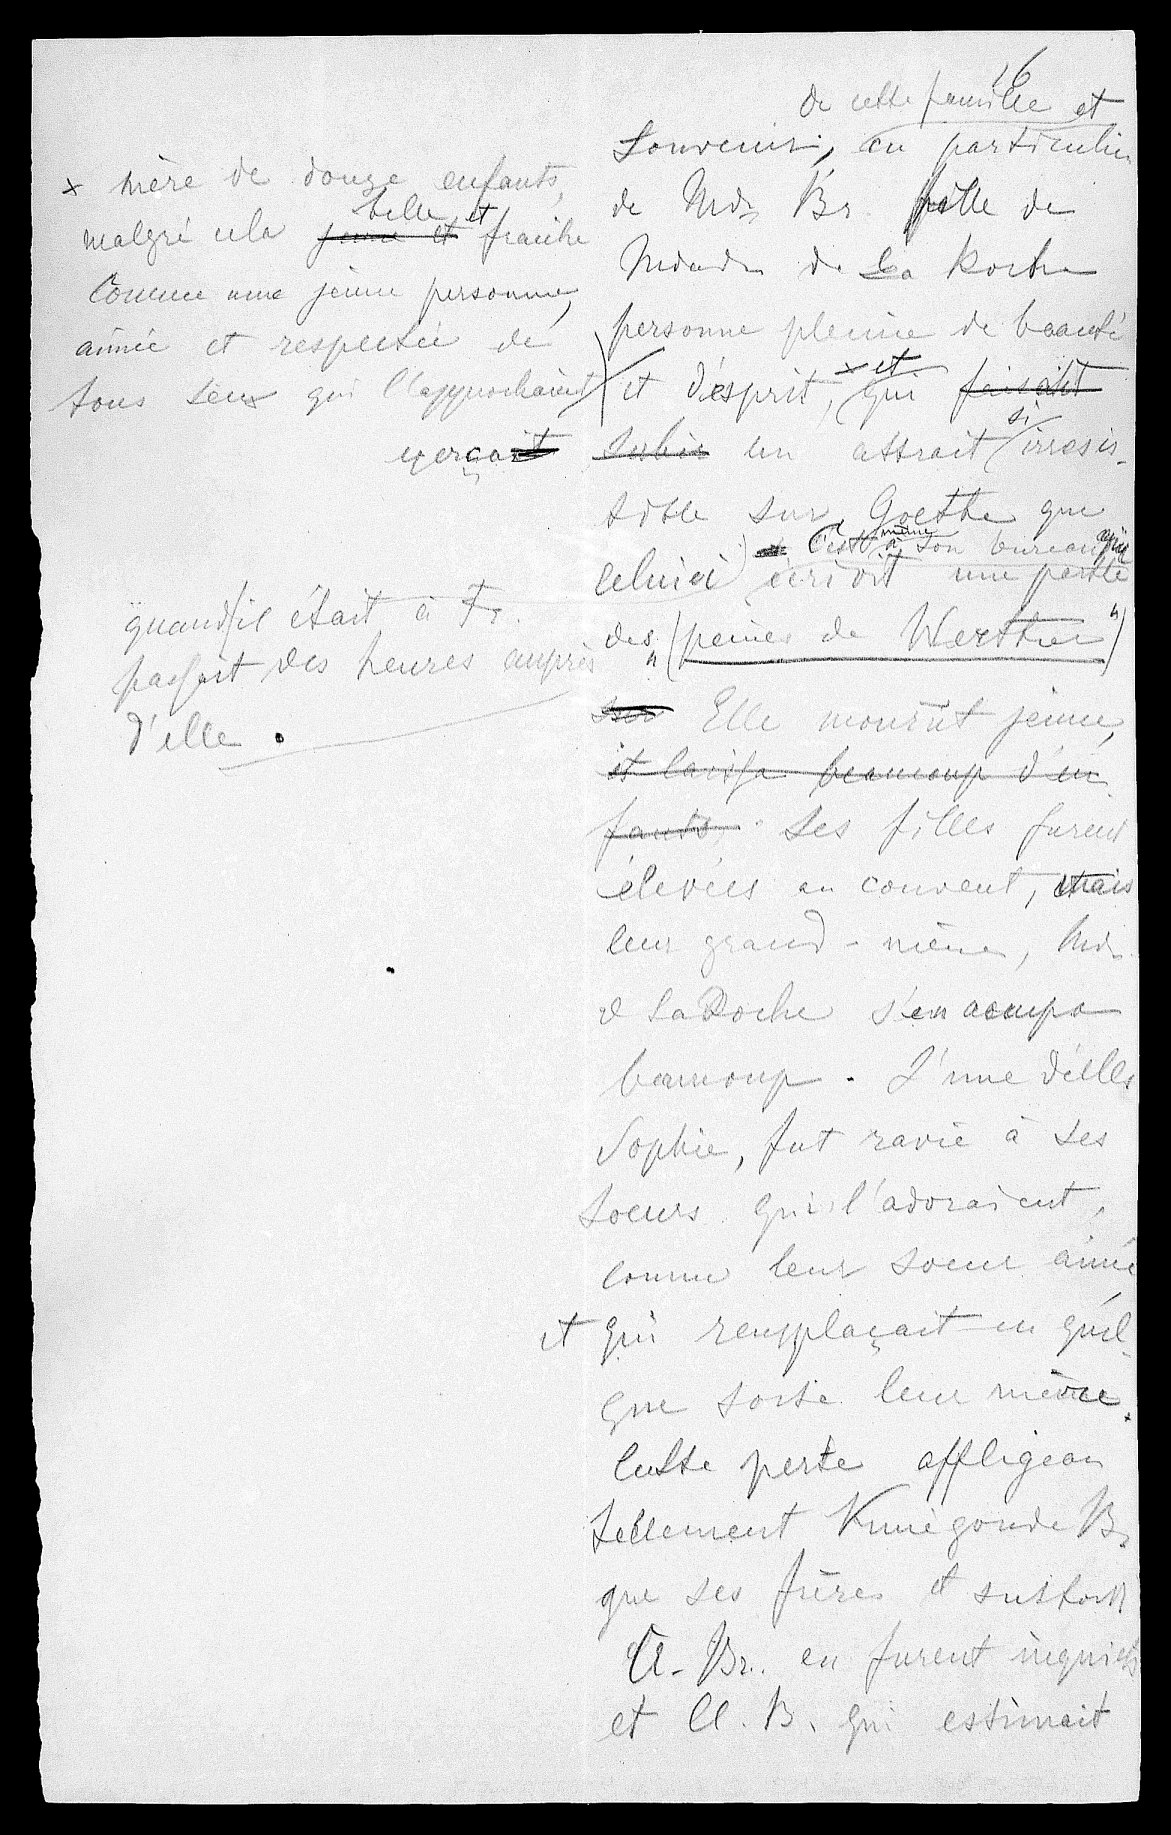 26
de cette famille et
Souvenir, en particulier
de Md. Br. fille de
Madame de La Roche
personne pleine de beauté
et d'esprit, x et qui faisait
subir un attrait si irrésis-
tible sur Goethe que
c'est même à son bureau qu'il
celui ci écrivit une partie
des „(peines de Werther")
Elle mourut jeune,
et laissa beaucoup d'en-
fants. Ses filles furent
élevées au couvent, mais
leur grand-mère, Md.
d La Roche s'en occupa
beaucoup. L'une d'elles
Sophie, fut ravie à ses
soeurs qui l'adoraient,
comme leur soeur ainée
et qui remplaçait en quel-
que sorte leur mère.
Cette perte affligea
tellement Kunégonde B.
que ses frères et surtout
Cl. Br. en furent inquiets
et Cl. B. qui estimait
x mère de douze enfants,
malgré cela jeune et belle et fraiche
Comme une jeune personne,
aimée et respectée de
tous ceux qui l'approchaient
exerçait
quand il était à Fr.
passait des heures auprès
d'elle.